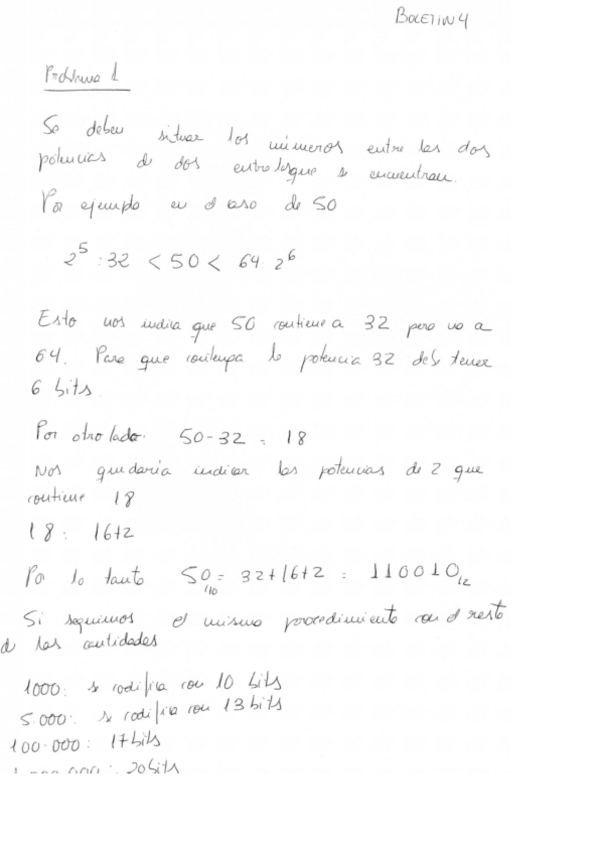 BOLETIN 4
Problema 1
Se deben situar los números entre las dos
potencias de dos entre las que se encuentran.
Por ejemplo en el caso de 50
2^5 : 32 < 50 < 64 : 2^6
Esto nos indica que 50 contiene a 32 pero no a
64. Para que contenga la potencia 32 debe tener
6 bits.
Por otro lado: 50-32 = 18
Nos quedaría indicar las potencias de 2 que
contiene 18
18: 16+2
Por lo tanto 50/10 = 32+16+2 = 110010/2
Si seguimos el mismo procedimiento con el resto
de las cantidades
1000: se codifica con 10 bits
5.000: se codifica con 13 bits
100.000: 17 bits
: 20 bits